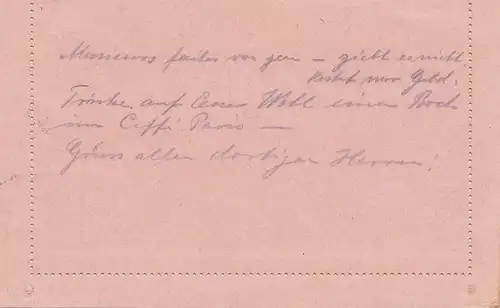 Messieurs faites vos jeux – giebt es nicht,
kostet nur Geld.
Trinke auf Euer Wohl einen Bock
im Caffé Paris –
Gruss allen dortigen Herren!